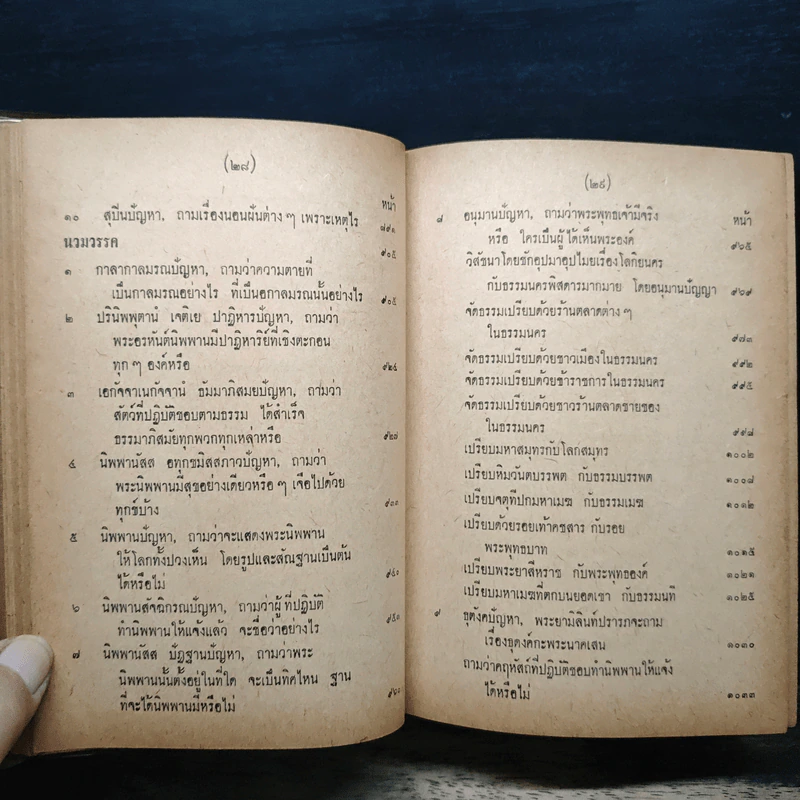 (๒๘)
หน้า
๑๐ สุปินปัญหา, ถามเรื่องนอนฝันต่าง ๆ เพราะเหตุไร ๘๙๑
นวมวรรค ๙๐๕
๑ กาลากาลมรณปัญหา, ถามว่าความตายที่
เป็นกาลมรณอย่างไร ที่เป็นอกาลมรณนั้นอย่างไร ๙๐๕
๒ ปรินิพพุตานํ เจติเย ปาฏิหารปัญหา, ถามว่า
พระอรหันต์นิพพานมีปาฏิหาริย์ที่เชิงตะกอน
ทุก ๆ องค์หรือ ๙๒๔
๓ เอกัจจาเนกัจจานํ ธัมมาภิสมยปัญหา, ถามว่า
สัตว์ที่ปฏิบัติชอบตามธรรม ได้สำเร็จ
ธรรมาภิสมัยทุกพวกทุกเหล่าหรือ ๙๒๗
๔ นิพพานัสส อทุกขมิสสภาวปัญหา, ถามว่า
พระนิพพานมีสุขอย่างเดียวหรือ ๆ เจือไปด้วย
ทุกข์บ้าง
๕ นิพพานปัญหา, ถามว่าจะแสดงพระนิพพาน
ให้โลกทั้งปวงเห็น โดยรูปและสัณฐานเป็นต้น
ได้หรือไม่ ๙๔๐
๖ นิพพานสัจฉิกรณปัญหา, ถามว่าผู้ที่ปฏิบัติ
ทำนิพพานให้แจ้งแล้ว จะชื่อว่าอย่างไร ๙๕๓
๗ นิพพานัสส ปัฏฐานปัญหา, ถามว่าพระ
นิพพานนั้นตั้งอยู่ในที่ใด จะเป็นทิศไหน ฐาน
ที่จะได้นิพพานมีหรือไม่ ๙๖๐
(๒๙)
หน้า
๘ อนุมานปัญหา, ถามว่าพระพุทธเจ้ามีจริง
หรือ ใครเป็นผู้ได้เห็นพระองค์ ๙๖๕
วิสัชนาโดยชักอุปมาอุปไมยเรื่องโลกิยนคร
กับธรรมนครพิสดารมากมาย โดยอนุมานปัญญา ๙๖๙
จัดธรรมเปรียบด้วยร้านตลาดต่าง ๆ
ในธรรมนคร ๙๗๓
จัดธรรมเปรียบด้วยชาวเมืองในธรรมนคร ๙๙๒
จัดธรรมเปรียบด้วยข้าราชการในธรรมนคร ๙๙๕
จัดธรรมเปรียบด้วยชาวร้านตลาดขายของ
ในธรรมนคร ๙๙๘
เปรียบมหาสมุทรกับโลกสมุทร ๑๐๐๒
เปรียบหิมวันตบรรพต กับธรรมบรรพต ๑๐๐๘
เปรียบจตุทีปกมหาเมฆ กับธรรมเมฆ ๑๐๑๒
เปรียบด้วยรอยเท้าคชสาร กับรอย
พระพุทธบาท ๑๐๑๕
เปรียบพระยาสีหราช กับพระพุทธองค์ ๑๐๒๑
เปรียบมหาเมฆที่ตกบนยอดเขา กับธรรมนที ๑๐๒๕
๙ ธุตังคปัญหา, พระยามิลินท์ปรารภจะถาม
เรื่องธุดงค์กะพระนาคเสน ๑๐๓๐
ถามว่าคฤหัสถ์ที่ปฏิบัติชอบทำนิพพานให้แจ้ง
ได้หรือไม่ ๑๐๓๓